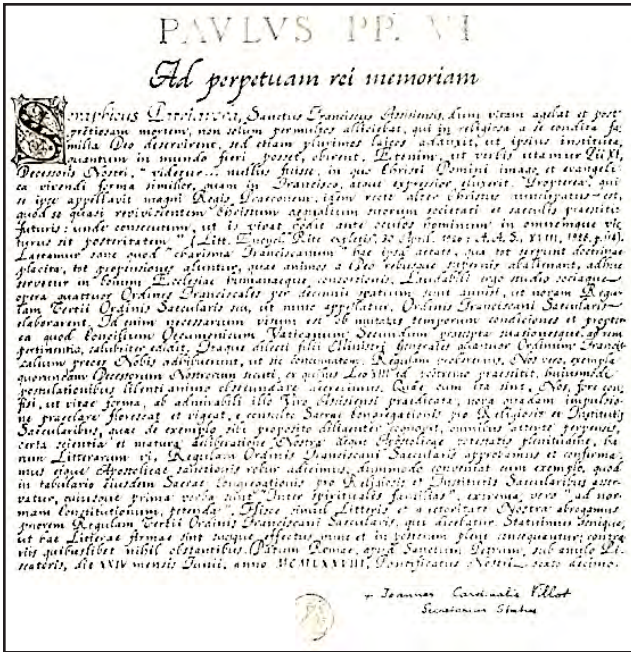 PAVLVS PP. VI
Ad perpetuam rei memoriam
Seraphicus Patriarcha, Sanctus Franciscus Assisiensis, dum vitam agebat et post
pretiosam mortem, non solum permultos alliciebat, qui in religiosa a se condita fa-
milia Deo deservirent, sed etiam plurimos laicos adduxit, ut ipsius instituta,
quantum in mundo fieri posset, obirent. Etenim, ut verbis utamur Pii XI,
Decessoris Nostri, "videtur... nullus fuisse, in quo Christi Domini imago et evangeli-
ca vivendi forma similior, quam in Francisco, atque expressior eluxerit. Propterea, qui
se ipse appellavit magni Regis Praeconem, idem recte alter Christus nuncupatus est,
quod se quasi redivivum Christum aequalium suorum societati et saeculis praestitit
futuris: unde consecutum, ut is vivat hodie ante oculos hominum in omnemque vic-
turus sit posteritatem" (Litt. Encycl. Rite expiatis, 30 April. 1926: A.A.S., XVIII, 1926, p. 154).
Laetamur sane quod "charisma Franciscanum" hac ipsa aetate, qua tot serpunt doctrinae
placita, tot propensiones aluntur, quae animos a Deo rebusque supernis abalienant, adhuc
servetur in bonum Ecclesiae humanaeque consortionis. Laudabili ergo studio sociaque
opera quattuor Ordines Franciscales per decennii spatium sunt annisi, ut novam Regu-
lam Tertii Ordinis Saecularis seu, ut nunc appellatur, Ordinis Franciscani Saecularis
elaborarent. Id enim necessarium visum est ob mutatas temporum condiciones et propter-
ea quod Concilium Oecumenicum Vaticanum Secundum praecepta suasionesque, ad rem
pertinentia, salubriter edidit. Itaque dilecti filii Ministri Generales quattuor Ordinum Francis-
calium preces Nobis adhibuerunt, ut sic concinnatam Regulam probaremus. Nos vero, exempla
quorundam Decessorum Nostrorum secuti, ex quibus Leo XIII id postremo praestitit, huiusmodi
postulationibus libenti animo obsecundare decrevimus. Quae cum ita sint, Nos, fore con-
fisi, ut vitae forma, ab admirabili illo Viro Assisiensi praedicata, nova quadam impulsio-
ne praeclare florescat et vigeat, e consulto Sacrae Congregationis pro Religiosis et Institutis
Saecularibus, quae de exemplo sibi proposito diligenter cognovit, omnibus attente perpensis,
certa scientia et matura deliberatione Nostra deque Apostolicae potestatis plenitudine, ha-
rum Litterarum vi, Regulam Ordinis Franciscani Saecularis approbamus et confirma-
mus eique Apostolicae sanctionis robur adicimus, dummodo conveniat cum exemplo, quod
in tabulario eiusdem Sacrae Congregationis pro Religiosis et Institutis Saecularibus asser-
vatur, cuiusque prima verba sunt "Inter spirituales familias", extrema vero "ad nor-
mam Constitutionum, petenda". Hisce simul Litteris et auctoritate Nostra abrogamus
priorem Regulam Tertii Ordinis Franciscani Saecularis, qui dicebatur. Statuimus denique,
ut hae Litterae firmae sint suosque effectus nunc et in posterum plene consequantur; contra-
riis quibuslibet nihil obstantibus. Datum Romae, apud Sanctum Petrum, sub anulo Pi-
scatoris, die XXIV mensis Iunii, anno MCMLXXVIII, Pontificatus Nostri sexto decimo.
+ Joannes Cardinalis Villot
Secretarius Status